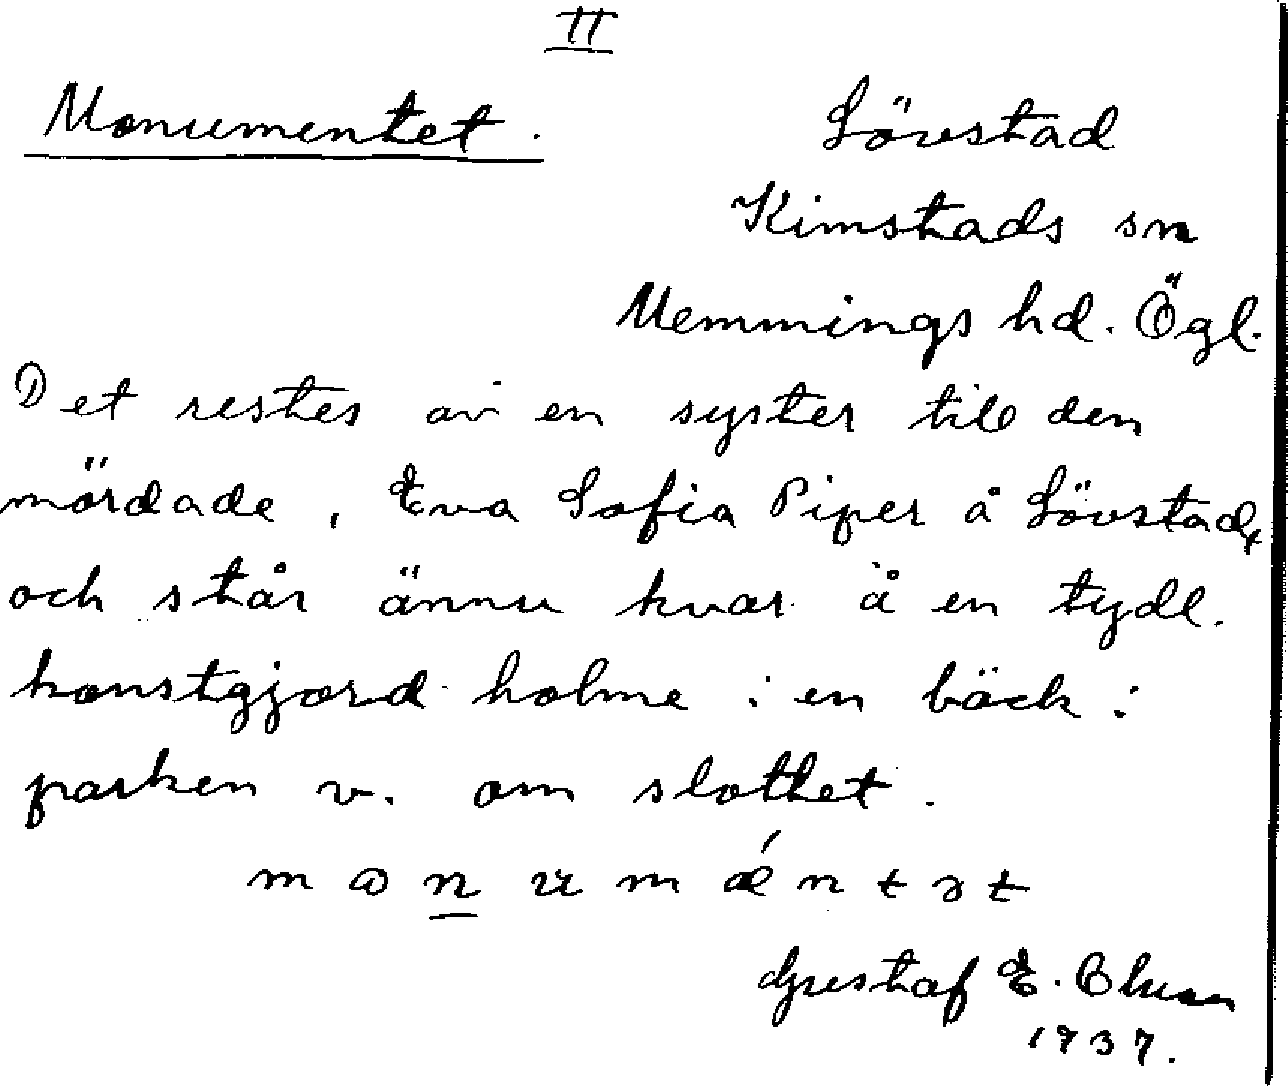 II
Monumentet. Lövstad
Kimstads sn
Memmings hd. Ögl.
Det restes av en syster till den
mördade, Eva Sofia Piper å Lövstad,
och står ännu kvar å en tydl.
konstgjord holme i en bäck i
parken v. om slottet.
Gustaf E.
1937.